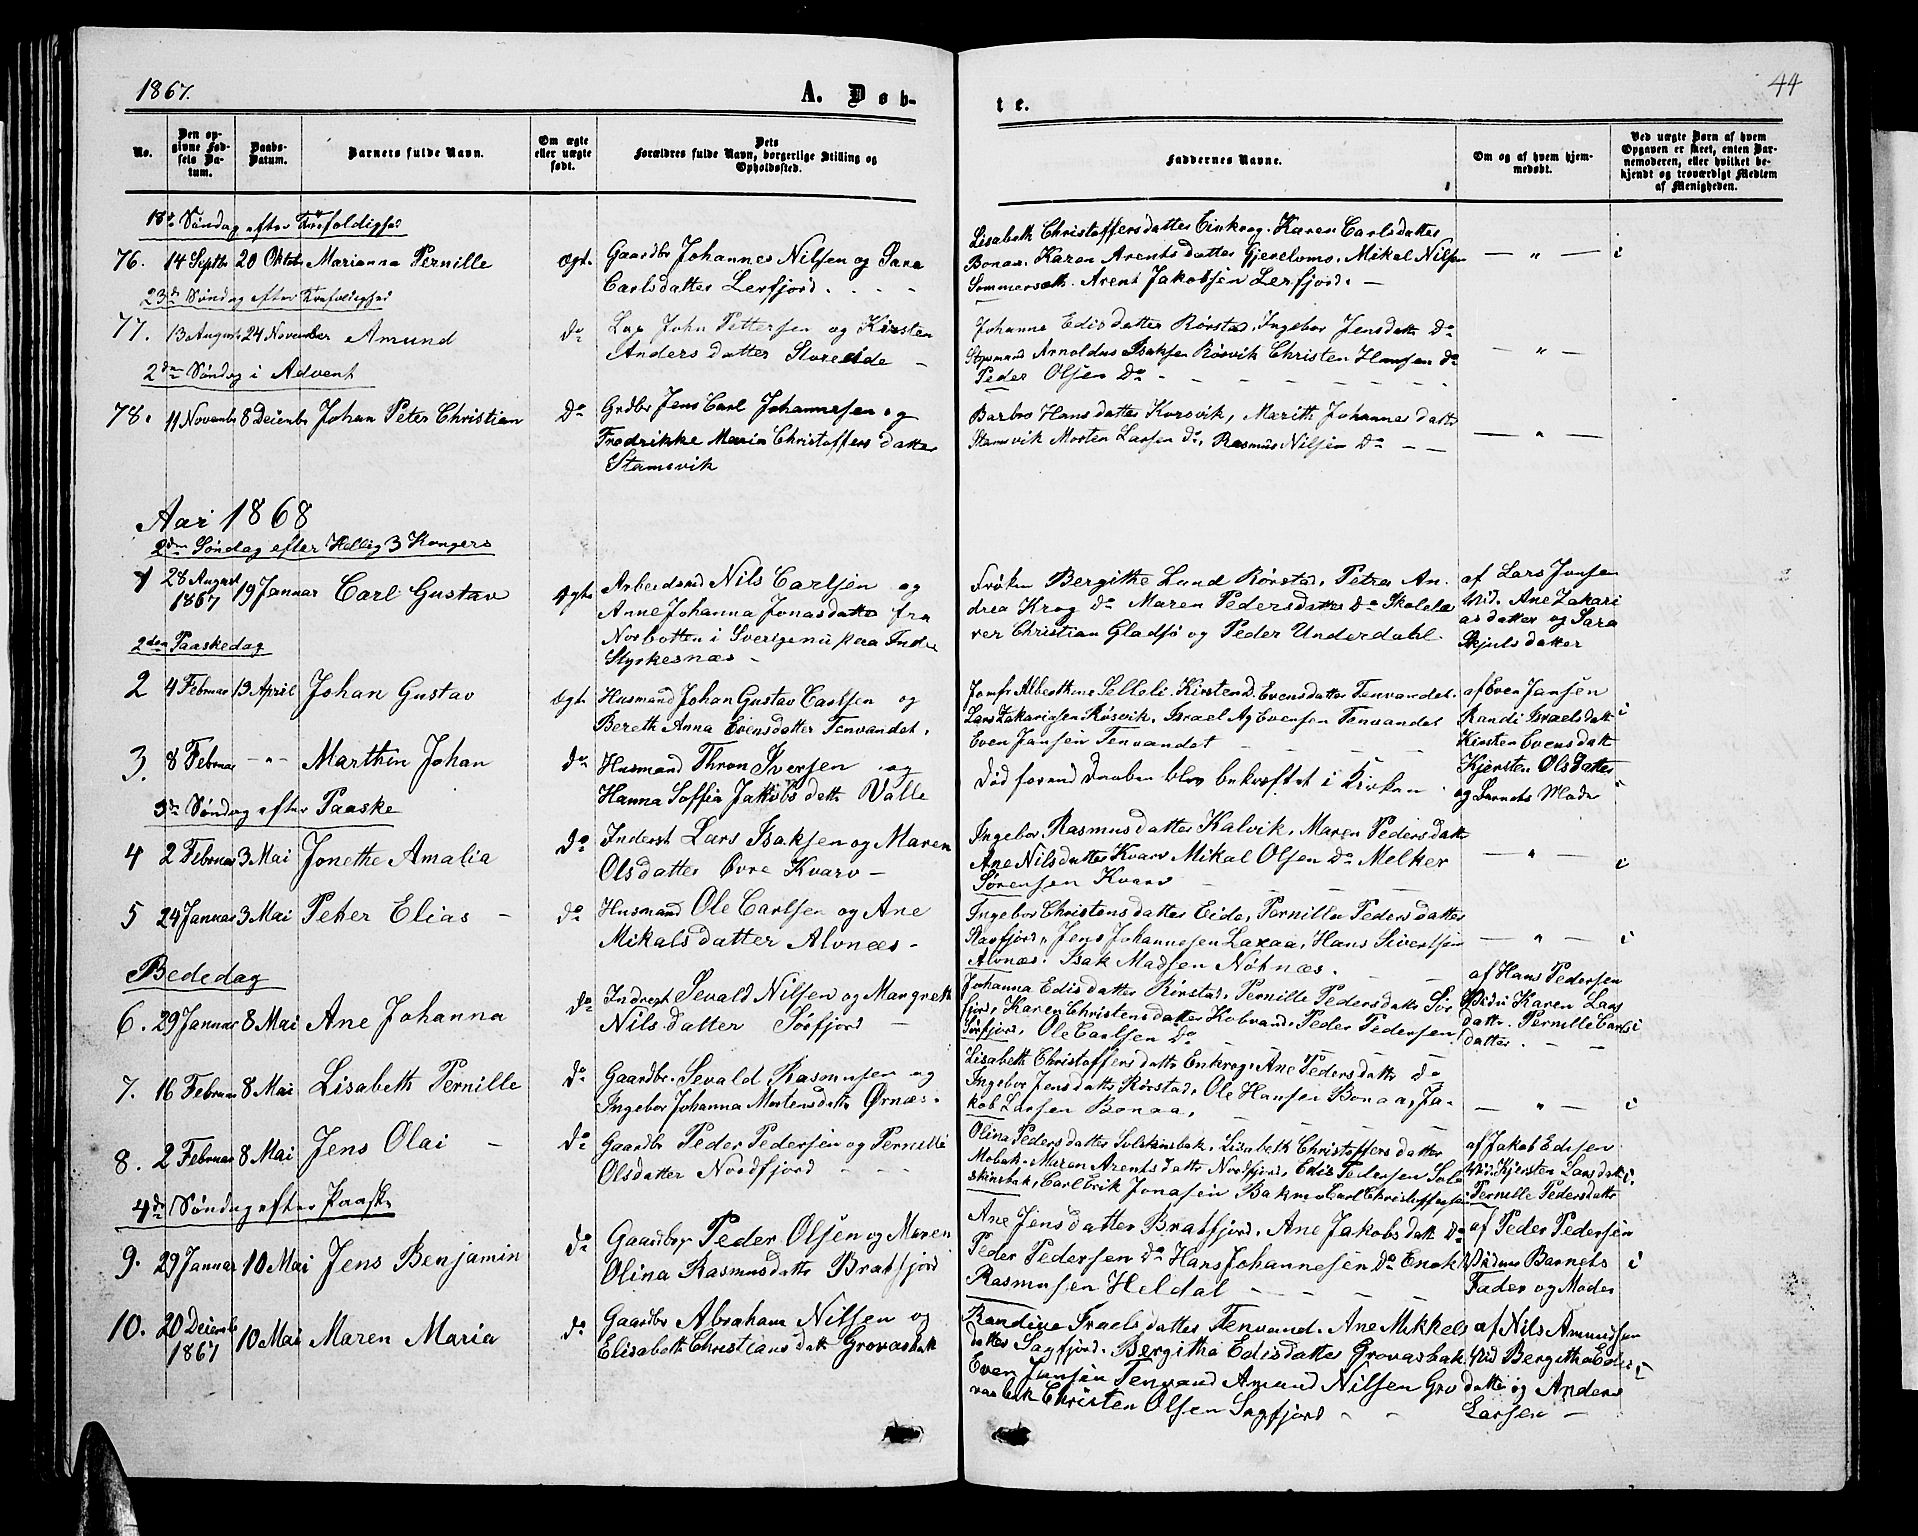 1867.
A. Døb-
te.
44
No.
Den opgivne Fødsels Datum.
Daabs-Datum.
Barnets fulde Navn.
Om ægte eller uægte født.
Dets Forældres fulde Navn, borgerlige Stilling og Opholdssted.
Faddernes Navne.
Om og af hvem hjemmedøbt.
Ved uægte Børn af hvem Opgaven er skeet, enten Barnemoderen, eller hvilket bekjendt og troværdigt Medlem af Menigheden.
18de Søndag efter Trefoldighed
76. 14 Septbr 20 Oktob Marianna Pernille ægt. Gaardbr Johannes Nilsen og Sara
Carlsdatter Lerfjord. - - -
Lisabeth Christoffersdatter Einkrog. Karen Carlsdatter
Bonaa. Karen Arentsdatter Gjerelvmo. Mikal Nilsen
Sommerseth. Arent Jakobsen Lerfjord. -
— " — i
23de Søndag efter Trefoldighed
77. 13 August 24 November Amund do Lap John Pettersen og Kirsten
Andersdatter Storeide -
Johanna Edisdatter Rørstad, Ingebor Jensdatt do
Arnoldus Isaksen Røsvik Christen Hansen do
Peder Olsen do - - - - -
— " —
2den Søndag i Advent
78. 11 Novembr 8 Deiembr Johan Peter Christian do Grdbr Jens Carl Johannesen og
Fredrikke Maria Christoffersdatter
Stamsvik
Barbro Hansdatter Korsvik, Marith Johannesdatt
Stamsvik Morten Larsen do, Rasmus Nilsen do - -
— " —
Aar 1868
2den Søndag efter Hellig 3 Kongers
1 28 August 1867 19 Januar Carl Gustav ægt. Arbeidsmd Nils Carlsen og
Anne Johanna Jonasdatte fra
Norbotten i Sverige nu paa Indre
Styrkesnæs -
Frøken Bergithe Lund Rørstad, Petra An-
drea Krog do Maren Pedersdatter do Skolelæ
rer Christian Gladsø og Peder Underdahl.
af Lars Jonsen
Vid. Ane Zakari
asdatter og Sara
Skjulsdatter
2den Paaskedag
2 4 Februar 13 April Johan Gustav ægt. Husmand Johan Gustav Carlsen og
Bereth Anna Evensdatter Tenvandet.
Jomfr Alberthine Selleli. Kirsten D. Evensdatter Tenvandet.
Lars Zakariasen Røsvik. Israel Aj Evensen Tenvandet
Even Jansen Tenvandet - - -
af Even Jansen
Randi Israelsdatt
Kirsten Evensdatt
i
3. 8 Februar - " - Marthin Johan do Husmand Thron Iversen og
Hanna Soffia Jakobsdatt Valle
Død forend Daaben blev bekræftet i Kirken.
Kjersten Olsdatter
og Barnets Moder
-
3de Søndag efter Paaske
4 2 Februar 3 Mai Jonethe Amalia do Inderst Lars Isaksen og Maren
Olsdatter Øvre Kvarv -
Ingebor Rasmusdatter Kalvik. Maren Pedersdatt
Ane Nilsdatter Kvarv Mikal Olsen do Melker
Sørensen Kvarv - - -
— " — i
5 24 Januar 3 Mai Peter Elias - do Husmand Ole Carlsen og Ane
Mikalsdatter Alvnæs -
Ingebor Christensdatter Eide, Pernilla Pedersdatter
Ragfjord, Jens Johannesen Laxaa, Hans Sivertsen
Alvnæs. Isak Madsen Nøtnæs. - -
— " — i
Bededag
6. 29 Januar 8 Mai Ane Johanna do Indregt Sevald Nilsen og Margreth
Nilsdatter Sørfjord -
Johanna Edisdatter Rørstad, Pernille Pedersdatt Sør
fjord, Karen Christensdatter Kobvand, Peder Pedersen
Sørfjord, Ole Carlsen do - -
af Hans Pedersen
Vidn Karen Lars
datt. Pernille Carls
datter. - -
i
7. 16 Februar 8 Mai Lisabeth Pernille do Gaardbr. Sevald Rasmusen og
Ingebor Johanna Mortensdatt Ørnæs.
Lisabeth Christoffersdatt Enkrog, Ane Pedersdatt do
Ingebor Jensdatte Rørstad, Ole Hansen Bonaa, Ja-
kob Larsen Bonaa,
— " — i
8. 2 Februar 8 Mai Jens Olai - do Gaardbr Peder Pedersen og Pernille
Olsdatter Nordfjord - - -
Olina Pedersdatter Solskinsbak, Lisabeth Christoffersdatter
Mobak. Maren Arentsdatte Nordfjord, Edis Pedersen Sol
skinsbak, Carl Erik Jonasen Bakmo Carl Christoffersen
af Jakob Edisen
Vid. Kjersten Larsdatt
Pernille Pedersdatt
i.
4de Søndag efter Paaske
9. 29 Januar 10 Mai Jens Benjamin do Gaardbrgr Peder Olsen og Maren
Olina Rasmusdatte Bratfjord
Ane Jensdatter Bratfjord. Ane Jakobsdatt do
Peder Pedersen do Hans Johannesen do Enok
Rasmusen Heldal - - - -
af Peder Pedersen
Vidner Barnets
Fader og Moder
i
10. 20 Deiemb 1867 10 Mai Maren Maria do Gaardbr Abraham Nilsen og
Elisabeth Christiansdatt Grovasbak
Randine Israelsdatter Tenvand. Ane Mikkels
datter Sagfjord. Bergitha Edisdatter Grovasbak
Even Jansen Tenvand Amund Nilsen Gro
vasbak Christen Olsen Sagfjord - -
af Nils Amundsen
Vid Bergitha Edis
datte og Anders
Larsen -
i